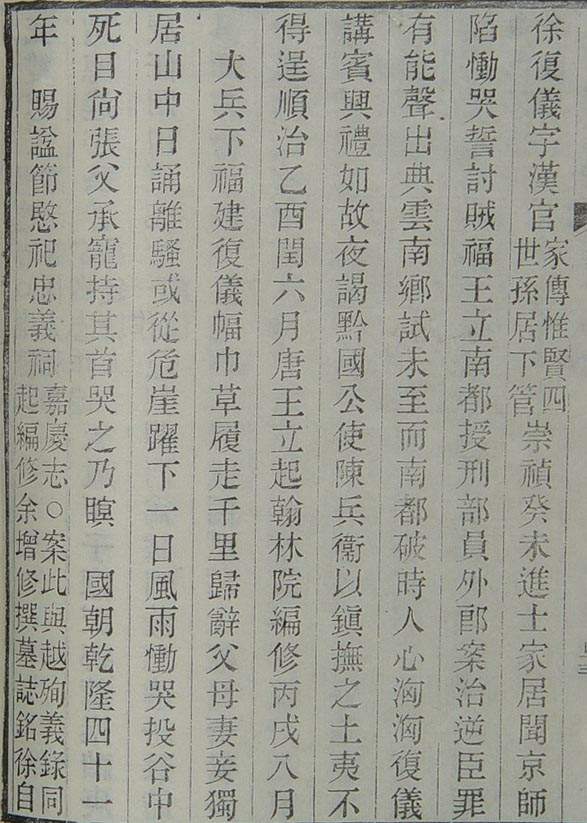 徐復儀字漢官家傳惟賢四世孫居下管崇禎癸未進士家居聞京師
陷慟哭誓討賊福王立南都授刑部員外郎案治逆臣罪
有能聲出典雲南鄉試未至而南都破時人心洶洶復儀
講賓興禮如故夜謁黔國公使陳兵衞以鎭撫之土夷不
得逞順治乙酉閏六月唐王立起翰林院編修丙戌八月
大兵下福建復儀幅巾草履走千里歸辭父母妻妾獨
居山中日誦離騷或從危崖躍下一日風雨慟哭投谷中
死目尙張父承寵持其首哭之乃瞑 國朝乾隆四十一
年 賜諡節愍祀忠義祠嘉慶志○案此與越殉義錄同起編修余增修撰墓誌銘徐自